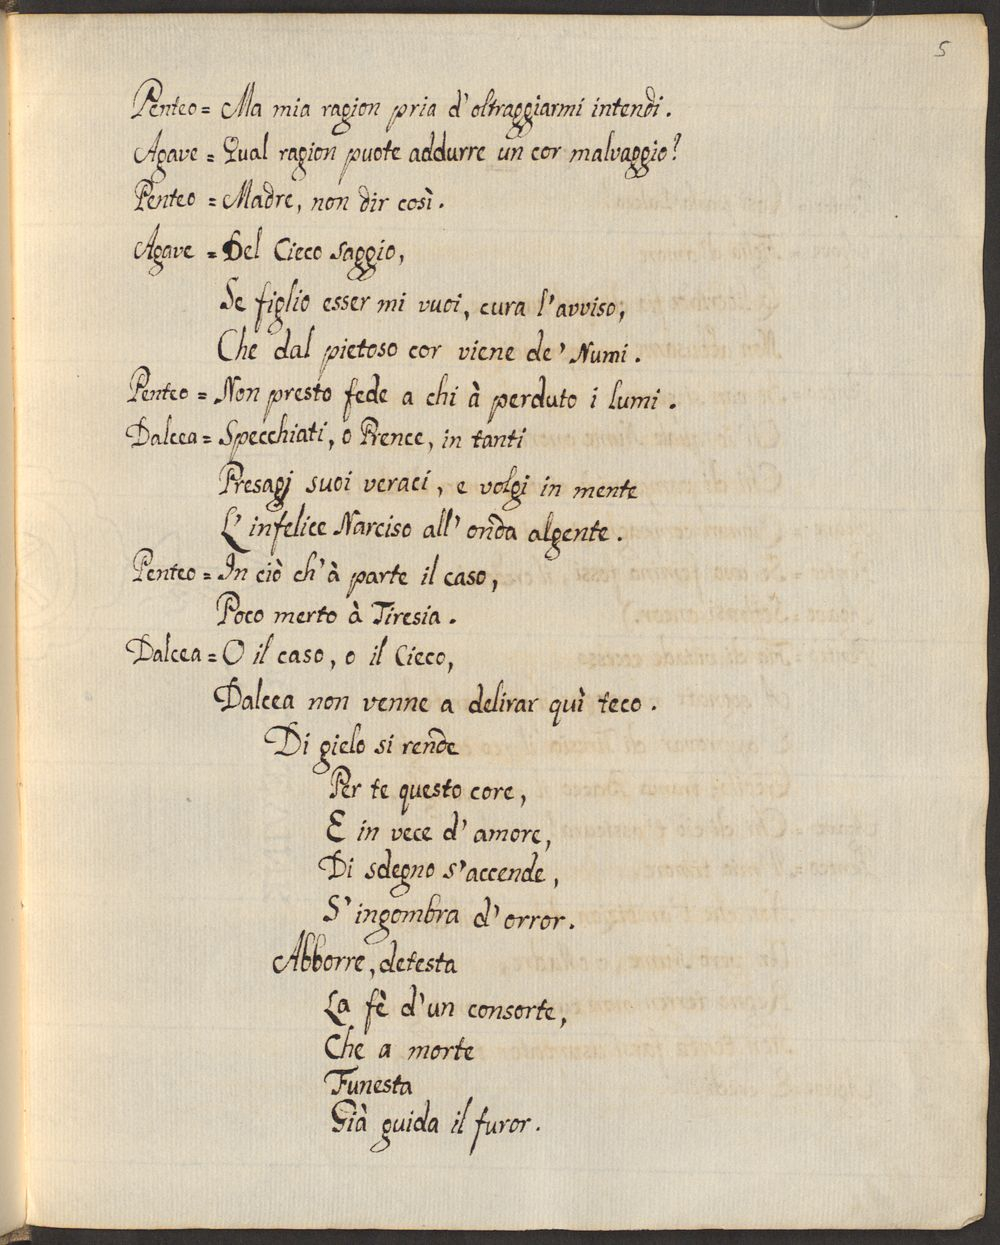 5
Penteo = Ma mia ragion pria d'oltraggiarmi intendi.
Agave = Qual ragion puote addurre un cor malvaggio?
Penteo = Madre, non dir così.
Agave = Del Cieco saggio,
Se figlio esser mi vuoi, cura l'avviso,
Che dal pietoso cor viene de' Numi.
Penteo = Non presto fede a chi à perduto i lumi.
Dalcea = Specchiati, o Prence, in tanti
Presagj suoi veraci, e volgi in mente
L'infelice Narciso all'onda algente.
Penteo = In ciò ch'à parte il caso,
Poco merto à Tiresia.
Dalcea = O il caso, o il Cieco,
Dalcea non venne a delirar quì teco.
Di gielo si rende
Per te questo core,
E in vece d'amore,
Di sdegno s'accende,
S'ingombra d'orror.
Abborre, detesta
La fè d'un consorte,
Che a morte
Funesta
Già guida il furor.